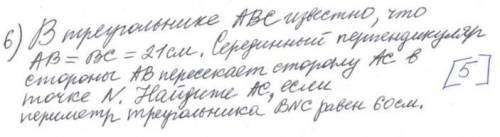 6) В треугольнике ABC известно, что
AB = BC = 21 см. Серединный перпендикуляр
стороны AB пересекает сторону AC в
точке N. Найдите AC, если
периметр треугольника BNC равен 60 см.
[5]